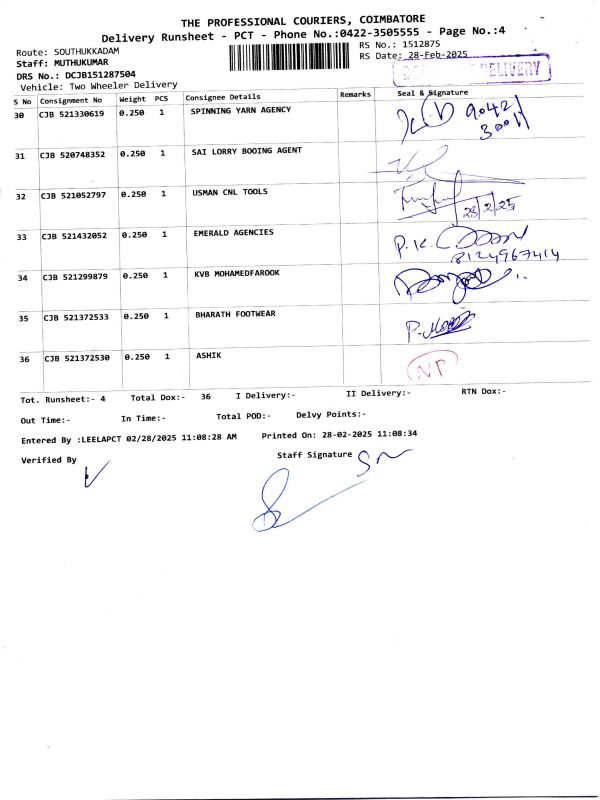 THE PROFESSIONAL COURIERS, COIMBATORE
Delivery Runsheet - PCT - Phone No.:0422-3505555 - Page No.:4
Route: SOUTHUKKADAM RS No.: 1512875
Staff: MUTHUKUMAR RS Date: 28-Feb-2025
DRS No.: DCJB151287504 DELIVERY
Vehicle: Two Wheeler Delivery
S No Consignment No Weight PCS Consignee Details Remarks Seal & Signature
30 CJB 521330619 0.250 1 SPINNING YARN AGENCY 9042
31 CJB 520748352 0.250 1 SAI LORRY BOOING AGENT
32 CJB 521052797 0.250 1 USMAN CNL TOOLS 28/2/25
33 CJB 521432052 0.250 1 EMERALD AGENCIES P.K.
8124967414
34 CJB 521299879 0.250 1 KVB MOHAMEDFAROOK
35 CJB 521372533 0.250 1 BHARATH FOOTWEAR
36 CJB 521372530 0.250 1 ASHIK
Tot. Runsheet:- 4 Total Dox:- 36 I Delivery:- II Delivery:- RTN Dox:-
Out Time:- In Time:- Total POD:- Delvy Points:-
Entered By :LEELAPCT 02/28/2025 11:08:28 AM Printed On: 28-02-2025 11:08:34
Verified By Staff Signature